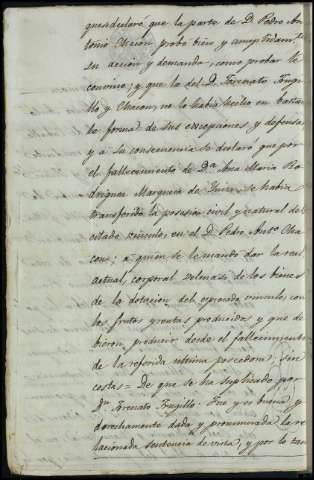 que declaró que la parte de D. Pedro An-
tonio Chacon probo bien y cumplidam.te
su accion y demanda, como probar le
convino; y que la del D. Forcuato Truji-
llo y Chacon, no lo habia hecho en bastan-
te forma de sus excepciones y defensas
y a su consecuencia se declaró que por
el fallecimiento de D.a Ana Maria Ro-
driguez Marquesa de se habia
transferido la posesion civil y natural del
citado vinculo, en el D. Pedro Ant.o Cha-
con; a quien se le mandó dar la real
actual, corporal velcuasi de los bienes
de la dotacion del espresado vinculo, con
los frutos y rentas producidos, y que de-
bieron producir desde el fallecimiento
de la referida ultima poseedora; sin
costas = De que se ha suplicado por
D.n Forcuato Trugillo: Fue y es buena y
derechamente dada y pronunciada la re-
lacionada sentencia de vista, y por lo tan-